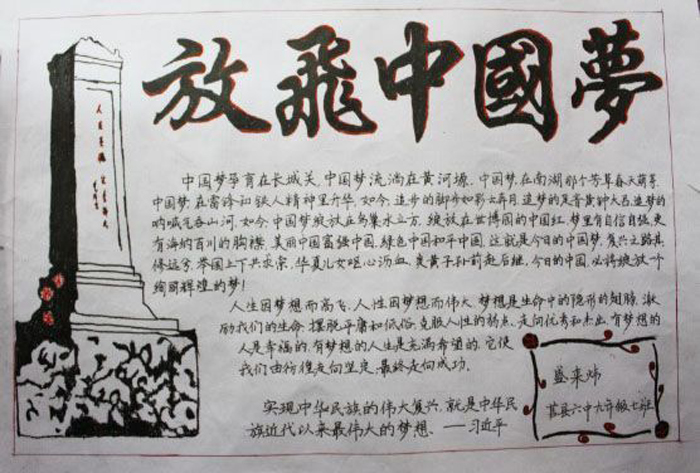 放飛中國夢
中国梦孕育在长城关,中国梦流淌在黄河塬.中国梦,在南湖那个芳草春天萌芽
中国梦,在雷锋和铁人精神里升华,如今,追步的脚步如彩云弄月.追梦的足音黄钟大吕.追梦的
呐喊气吞山河.如今,中国梦绽放在鸟巢水立方,绽放在世博园的中国红.梦里有自信自强,更
有海纳百川的胸襟.美丽中国富强中国,绿色中国和平中国,这就是今日的中国梦,复兴之路其
修远兮,举国上下共求索,华夏儿女呕心沥血,炎黄子孙前赴后继,今日的中国,必将绽放一个
绚丽辉煌的梦!
人生因梦想而高飞,人性因梦想而伟大 梦想是生命中的隐形的翅膀,激
励我们的生命,摆脱平庸和低俗,克服人性的弱点,走向优秀和杰出.有梦想的
人是幸福的,有梦想的人生是充满希望的,它使
我们由彷徨走向坚定,最终走向成功.
实现中华民族的伟大复兴,就是中华民
族近代以来最伟大的梦想、——习近平
盛来炜
莒县六中九年级七班